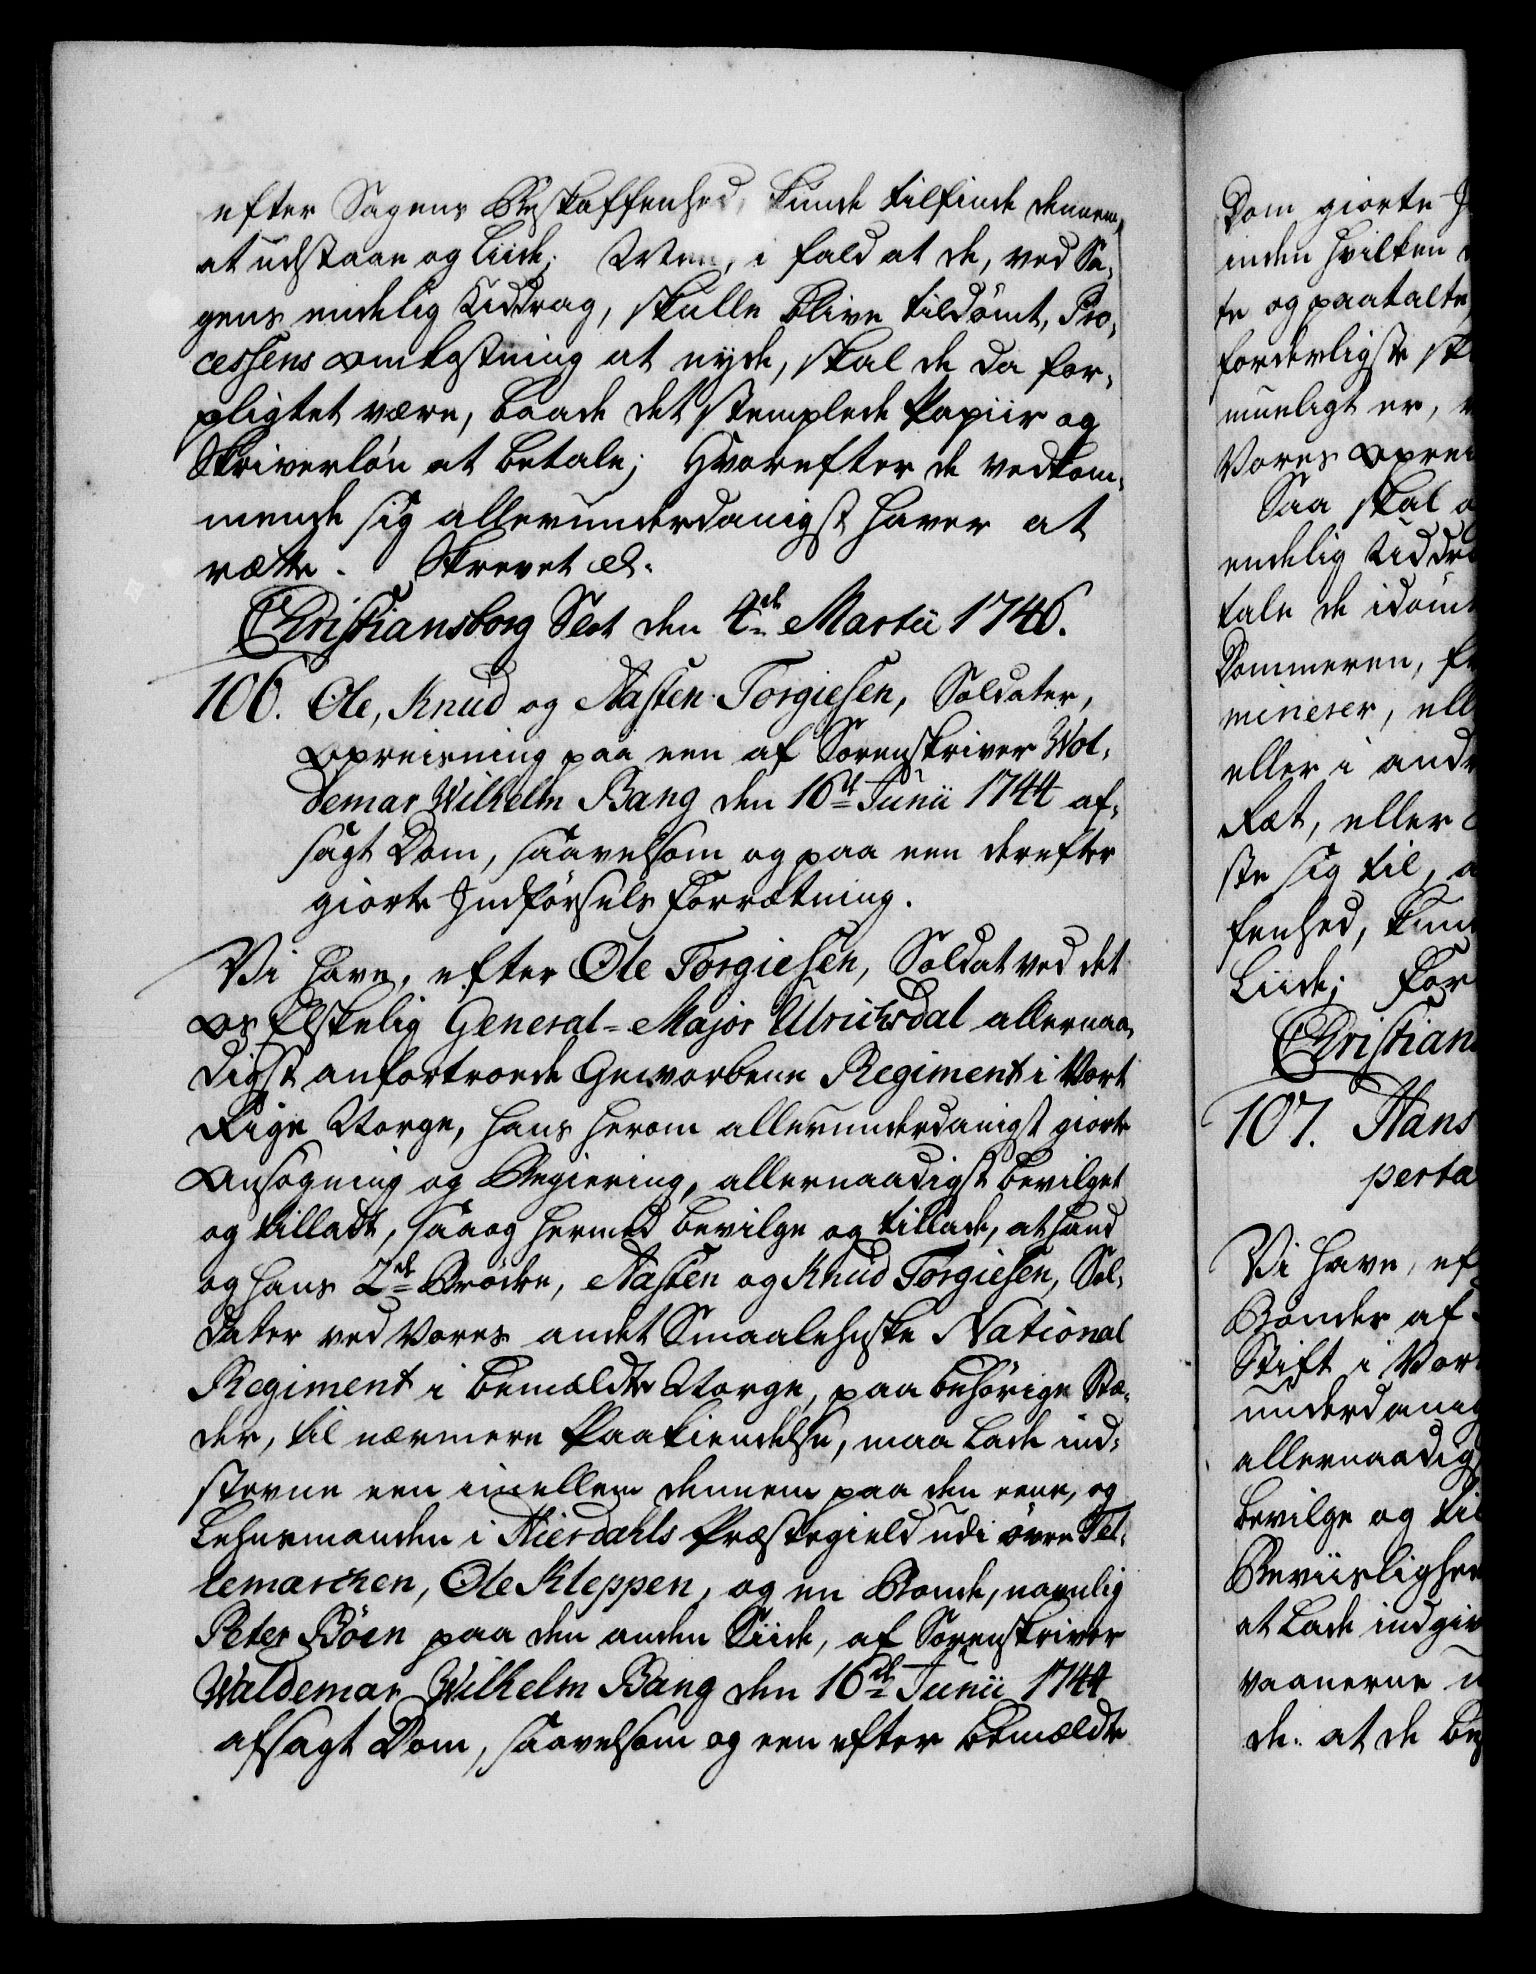 efter Sagens Beskaffenhed, kunde tilfinde dennem,
at udstaae og liide; Men, i fald at de, ved Sa-
gens endelig Uddrag, skulle blive tildömt, Pro-
cessens Omkostning at nyde, skal de da for-
pligtet være, baade det stemplede Papiir og
Skriverlön at betale; Hvorefter de vedkom-
mende sig allerunderdanigst haver at
rætte. Skrevet &c.
Christiansborg Slot den 4de Martii 1746.
106. Ole, Knud og Aasten Torgiesen, Soldater,
Opreisning paa een af Sorenskriver Wol-
demar Wilhelm Bang den 16de Junii 1744 af-
sagt Dom, saavelsom og paa een derefter
giorte Indförsels Forrætning.
Vi have, efter Ole Torgiesen, Soldat ved det
Os Elskelig General-Major Ulrichsdal allernaa-
digst anfortroede Gevorbene Regiment i Vort
Rige Norge, hans herom allerunderdanigst giorte
Ansögning og Begiering, allernaadigst bevilget
og tilladt, saa og hermed bevilge og tillade, at hand
og hans 2de Brödre, Aasten og Knud Torgiesen, Sol-
dater ved Vores andet Smaalehnske National
Regiment i bemældte Norge, paa behörige Stæ-
der, til nærmere Paakiendelse, maa lade ind-
stevne een imellem dennem paa den eene, og
Lehnsmanden i Hierdahls Præstegield udi övre Tel-
lemarchen, Ole Kleppen, og en Bonde, navnlig
Peter Böen paa den anden Siide, af Sorenskriver
Woldemar Wilhelm Bang den 16de Junii 1744
afsagt Dom, saavelsom og een efter bemældte
Dom giorte
inden hvilken
te og paatalte,
forderligste
mueligt er,
Vores
Saa skal
endelig Uddra
tale de idömt
Dommeren,
mineret,
eller i
Ræt, eller
ste sig til,
fenhed,
liide; For
Christian
107. Hans
perta
Vi have,
Bönder af
Stift i
underdanig
allernaadig
bevilge og
Beviisligheder
at lade indgiv
vaanerne
de: at de